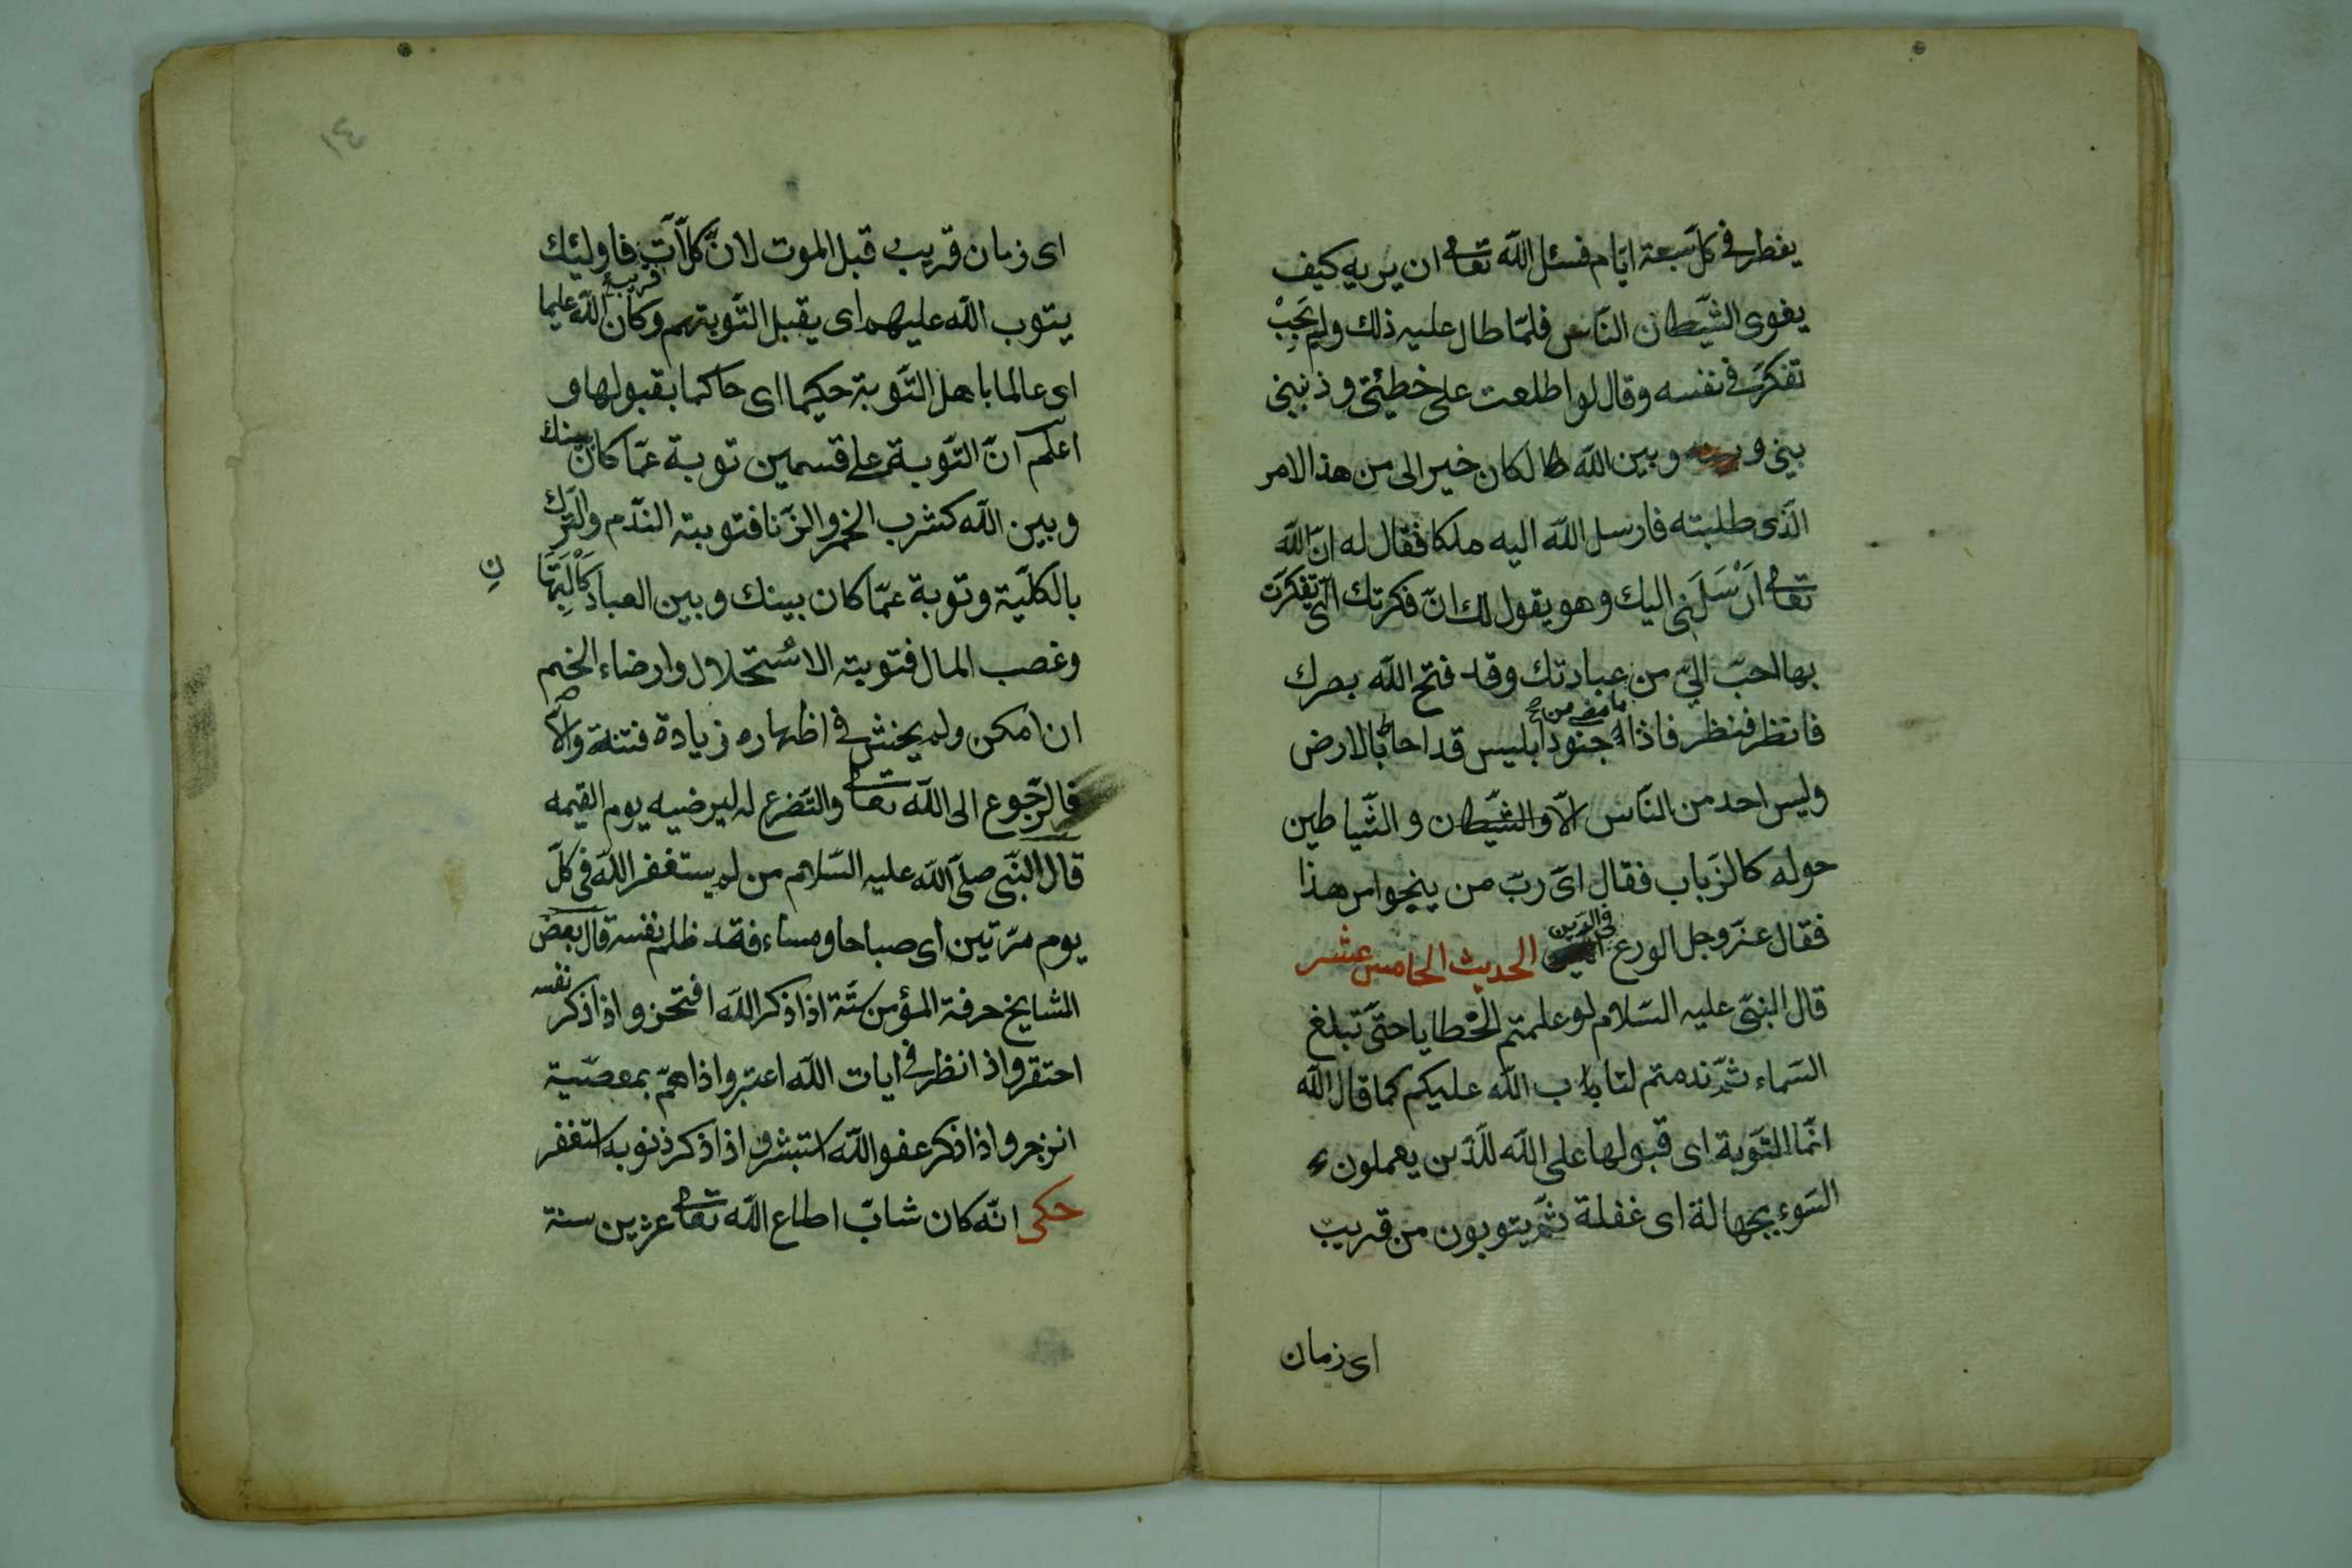 يفطر في كل سبعة ايّام فسئل الله تعالى ان يريه كيف
يغوى الشّيطان النّاس فلمّا طال عليه ذلك ولم يَجِبْ
تفكرّ في نفسه وقال لو اطلعت على خطيئتى وذنبى
بينى و وبين الله طا لكان خير الى من هذا الامر
الّذى طلبته فارسل الله اليه ملكا فقال له انّ الله
تعالى اَرْسَلَنى اليك وهو يقول لك انّ فكرتك الّتى تفكرّت
بها احبّ الىّ من عبادتك وقد فتح الله بصرك
ما مضى من
فانظر فنظر فاذا جنود ابليس قد احاط بالارض
وليس احد من النّاس الّا والشّيطان و الشّياطين
حوله كالزباب فقال اىّ ربّ من ينجوا من هذا
فقال عزّ وجل الورع في الدين الحديث الخامس عشر
قال النبّى عليه السّلام لو علمتم الخطايا حتىّ تبلغ
السّماء ثمّ ندمتم لتاب الله عليكم كما قال الله
انّما التّوبة اى قبولها على الله للّذين يعملون
السّوء بجهالة اى غفلة ثمّ يتوبون من قريب
اى زمان
١٤
اى زمان قريب قبل الموت لانّ كلّ آتٍ قريب فاولئك
يتوب الله عليهم اى يقبل التّوبتهم وكان الله عليما
اى عالما باهل التّوبة حكيما اى حاكما بقبولها و
اعلم انّ التّوبة على قسمين توبة عمّا كان بينك
وبين الله كشرب الخمر والزّنا فتوبته النّدم والتّرك
بالكليّة وتوبة عمّا كان بينك وبين العباد
نِ
وغصب المال فتوبته الاستحلال وارضاء الخصم
ان امكن ولم يخش في اظهاره زيادة فتنة والّا
فالرّجوع الى الله تعالى والتّضرع له ليرضيه يوم القيمه
قال النّبى صلّى الله عليه السّلام من لم يستغفر الله في كلّ
يوم مرّتين اى صباحا ومساء فقد ظلم نفسه قال بعض
المشايخ حرفة المؤمن ستّة اذا ذكر الله افتخر واذا ذكر نفسه
احتقر واذا نظر في ايات الله اعتبر واذا همّ بمعصيّة
انزجر واذا ذكر عفو الله استبشر واذا ذكر ذنوبه استغفر
حكى انّه كان شابّ اطاع الله تعالى عشرين سنة